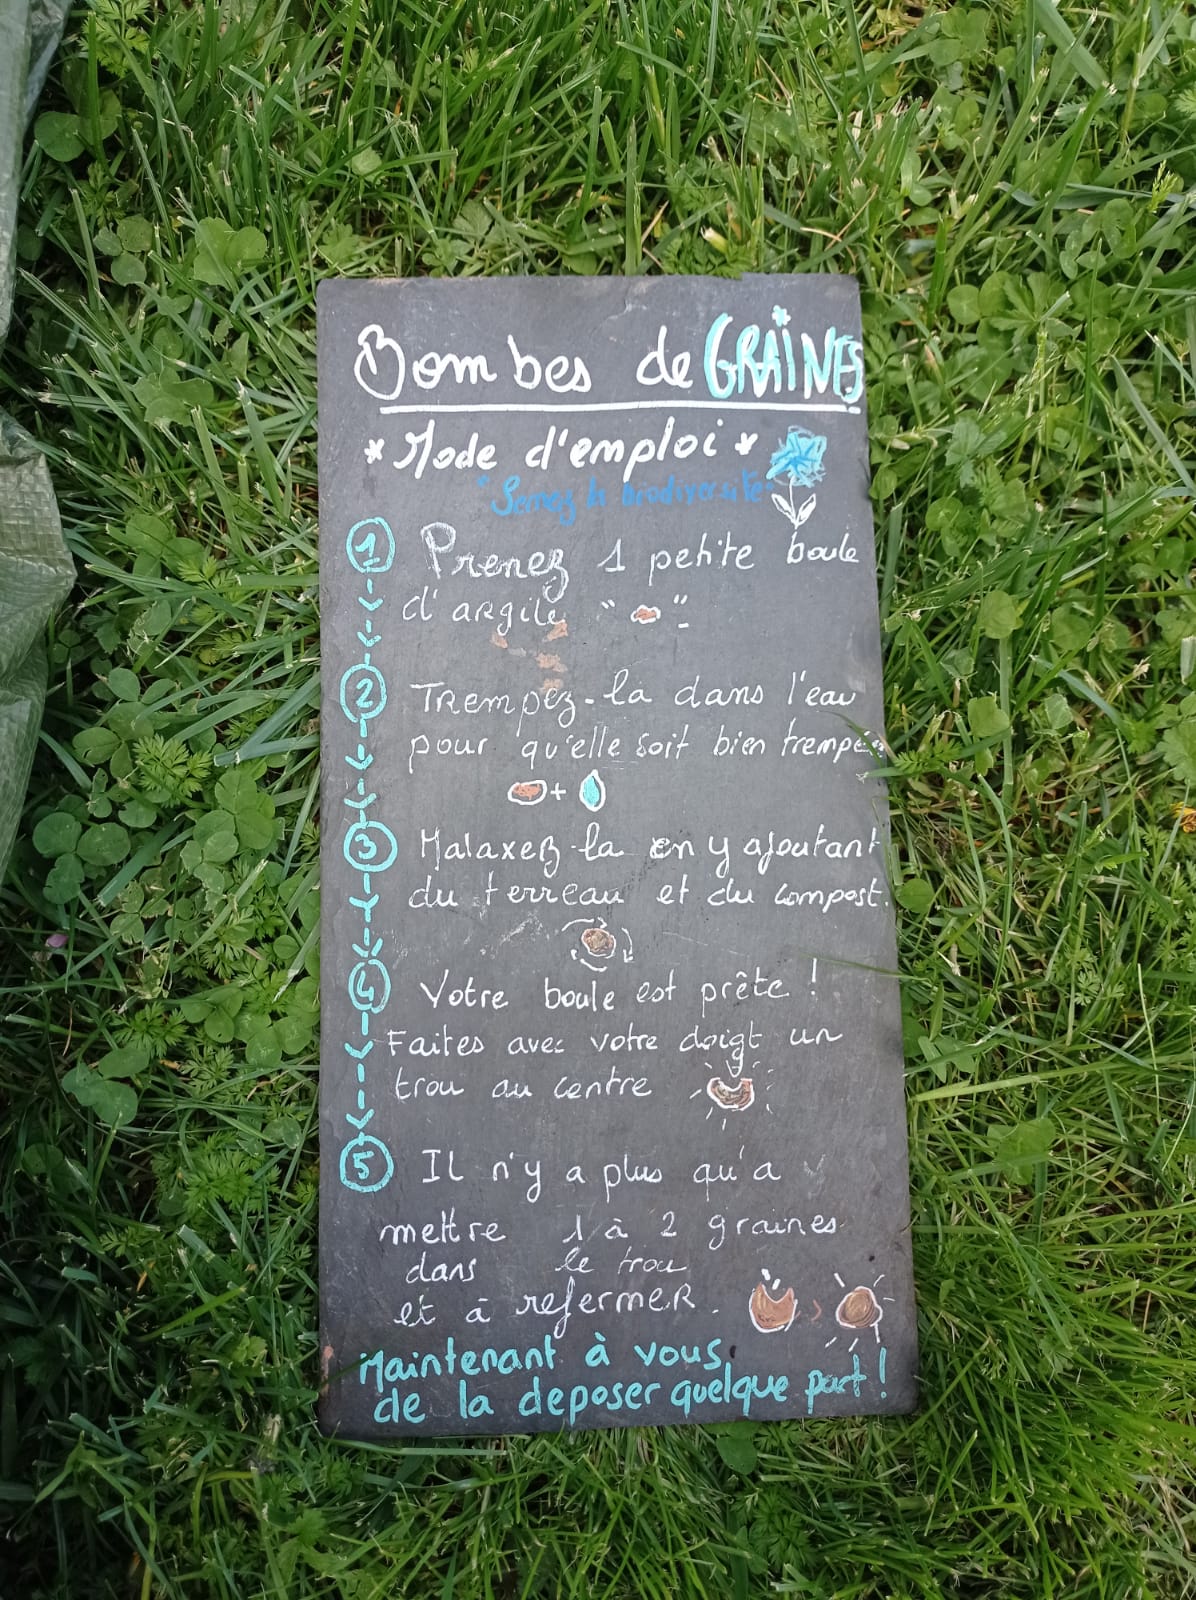 Bombes de GRAINES
* Mode d'emploi *
"Semez la biodiversité"
1 Prenez 1 petite boule
d'argile " "
2 Trempez-la dans l'eau
pour qu'elle soit bien trempée
+
3 Malaxez-la en y ajoutant
du terreau et du compost.
4 Votre boule est prête !
Faites avec votre doigt un
trou au centre
5 Il n'y a plus qu'a
mettre 1 à 2 graines
dans le trou
et à refermer.
Maintenant à vous
de la deposer quelque part !